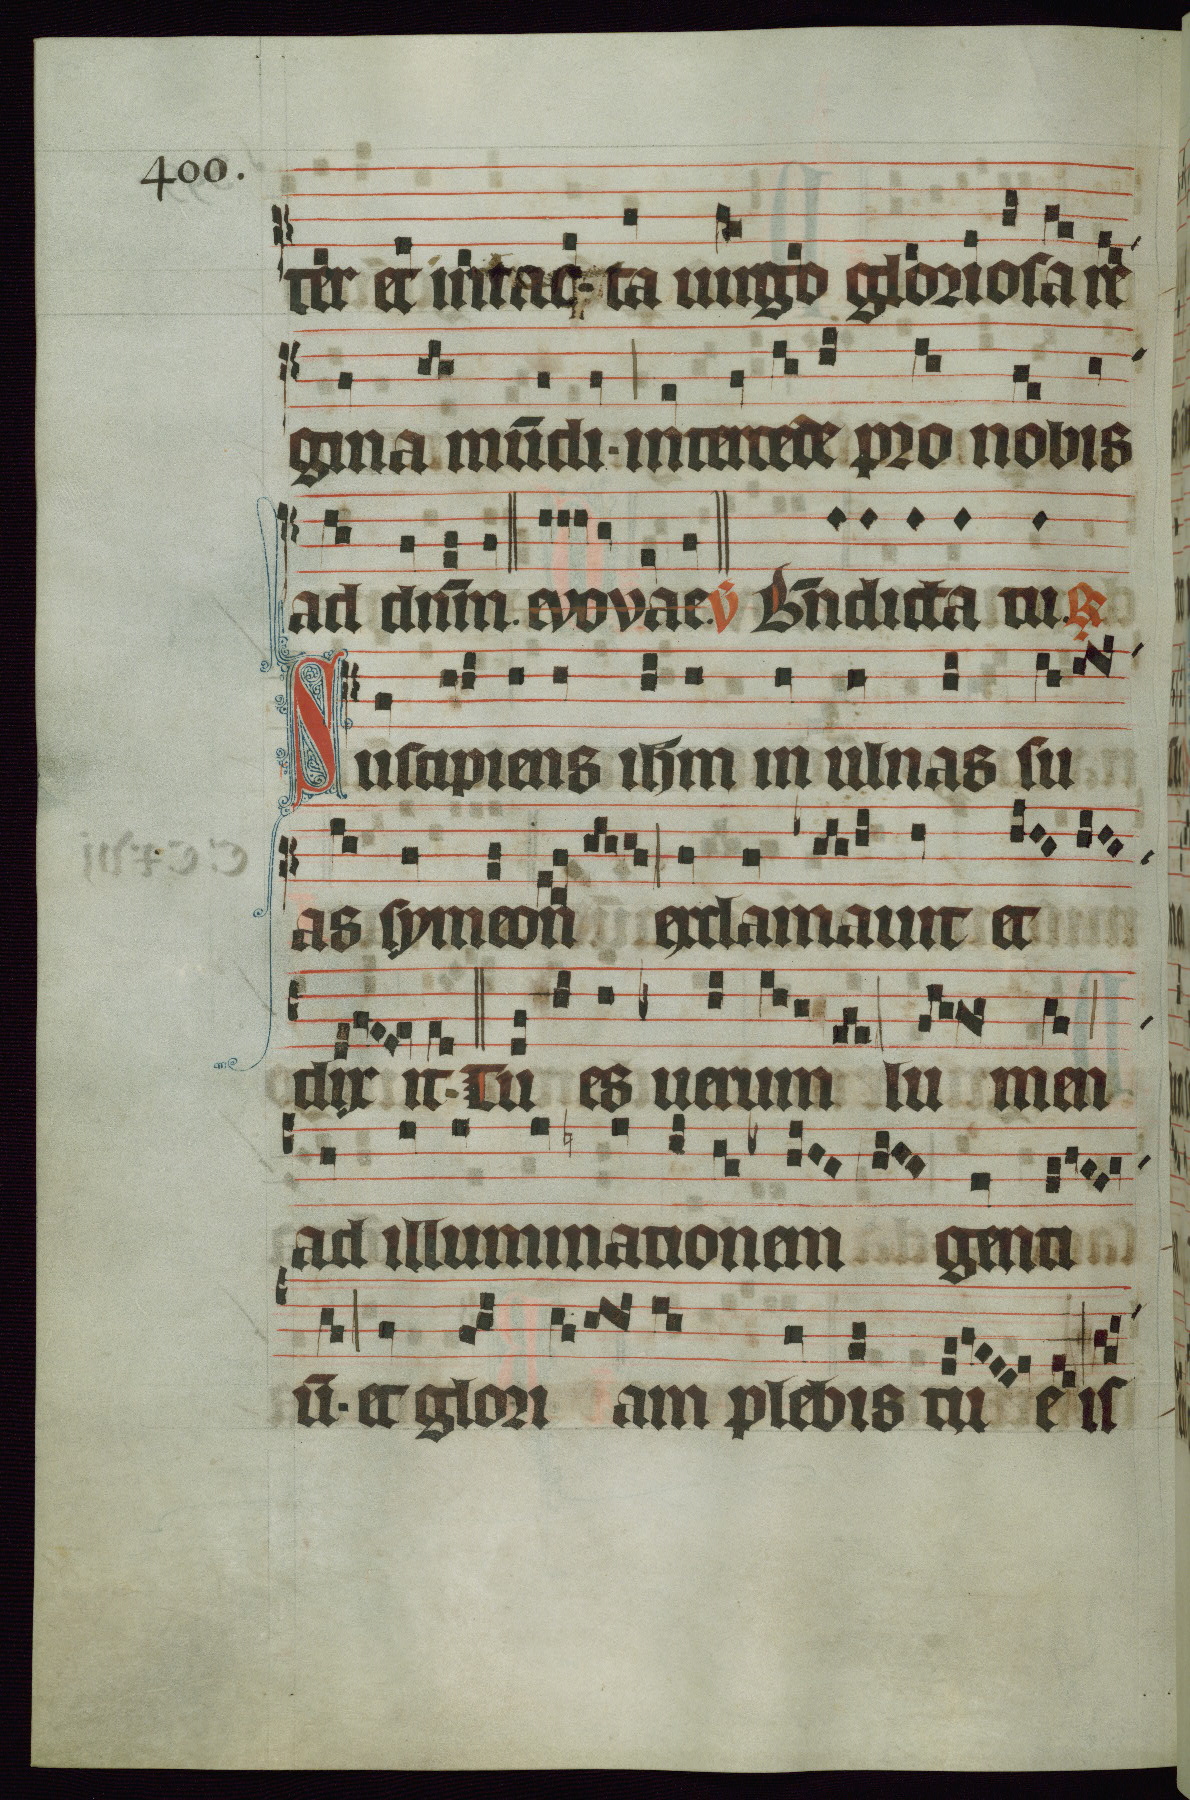 400.
ter et intac-ta uirgo gloriosa re
gina mūdi·intercede pro nobis
ad dnm̄. evovae. v̄ Bn̄dicta tu. R
Suscipiens ihm̄ in ulnas su
as symeon exclamauit et
dix it·Tu es uerum lu men
ad illuminationem genti
ū·et glori am plebis tu e is